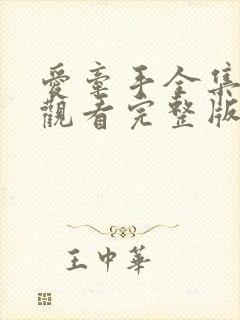 愛牽手全集
觀看完整版
王中華